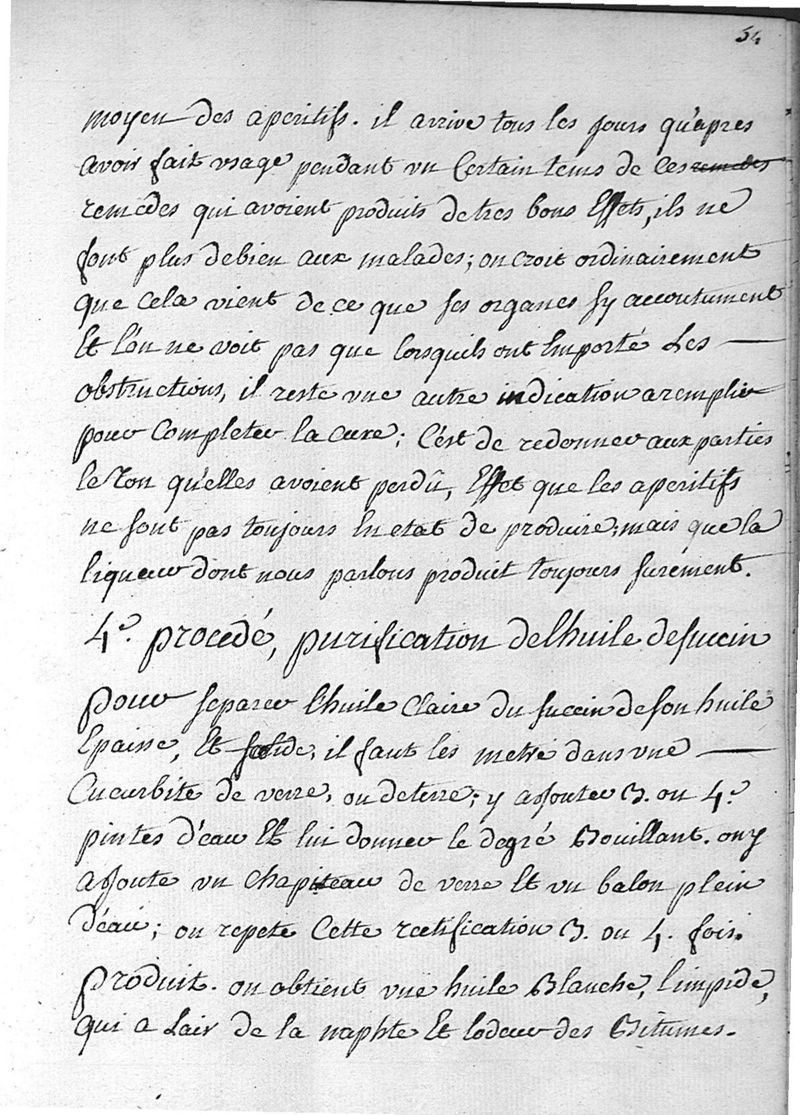 54
moyen des aperitifs. il arrive tous les jours qu'apres
avoir fait usage pendant un certain tems de ces remedes
remedes qui avoient produits de tres bons Effets, ils ne
font plus de bien aux malades; on croit ordinairement
que cela vient de ce que ses organes s'y accoutument
Et l'on ne voit pas que lorsquils ont Emporté Les
obstructions, il reste une autre indication a remplir
pour completer la cure; C'est de redonner aux parties
le Ton qu'elles avoient perdû, Effet que les aperitifs
ne sont pas toujours En etat de produire, mais que la
liqueur dont nous parlons produit toujours surement.
4e. procedé, purification de l'huile de succin
pour separer l'huile Claire du succin de son huile
Epaisse, Et solide, il faut les metre dans une
Cucurbite de verre, ou de terre; y ajouter 3. ou 4.
pintes d'eau Et lui donner le degré Bouillant. on y
ajoute un chapiteau de verre Et un balon plein
d'eau; on repete Cette rectification 3. ou 4. fois.
produit. on obtient une huile Blanche, limpide,
qui a Lair de la naphte Et lodeur des Bitumes.